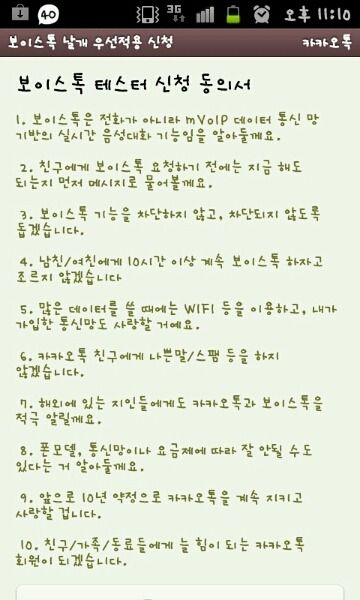 40 3G 오후 11:10
보이스톡 날개 우선적용 신청 카카오톡
보이스톡 테스터 신청 동의서
1. 보이스톡은 전화가 아니라 mVoIP 데이터 통신 망
기반의 실시간 음성대화 기능임을 알아둘게요.
2. 친구에게 보이스톡 요청하기 전에는 지금 해도
되는지 먼저 메시지로 물어볼게요.
3. 보이스톡 기능을 차단하지 않고, 차단되지 않도록
돕겠습니다.
4. 남친/여친에게 10시간 이상 계속 보이스톡 하자고
조르지 않겠습니다
5. 많은 데이터를 쓸 때에는 WIFI 등을 이용하고, 내가
가입한 통신망도 사랑할 거예요.
6. 카카오톡 친구에게 나쁜말/스팸 등을 하지
않겠습니다.
7. 해외에 있는 지인들에게도 카카오톡과 보이스톡을
적극 알릴게요.
8. 폰모델, 통신망이나 요금제에 따라 잘 안될 수도
있다는 거 알아둘게요.
9. 앞으로 10년 약정으로 카카오톡을 계속 지키고
사랑할 겁니다.
10. 친구/가족/동료들에게 늘 힘이 되는 카카오톡
회원이 되겠습니다.